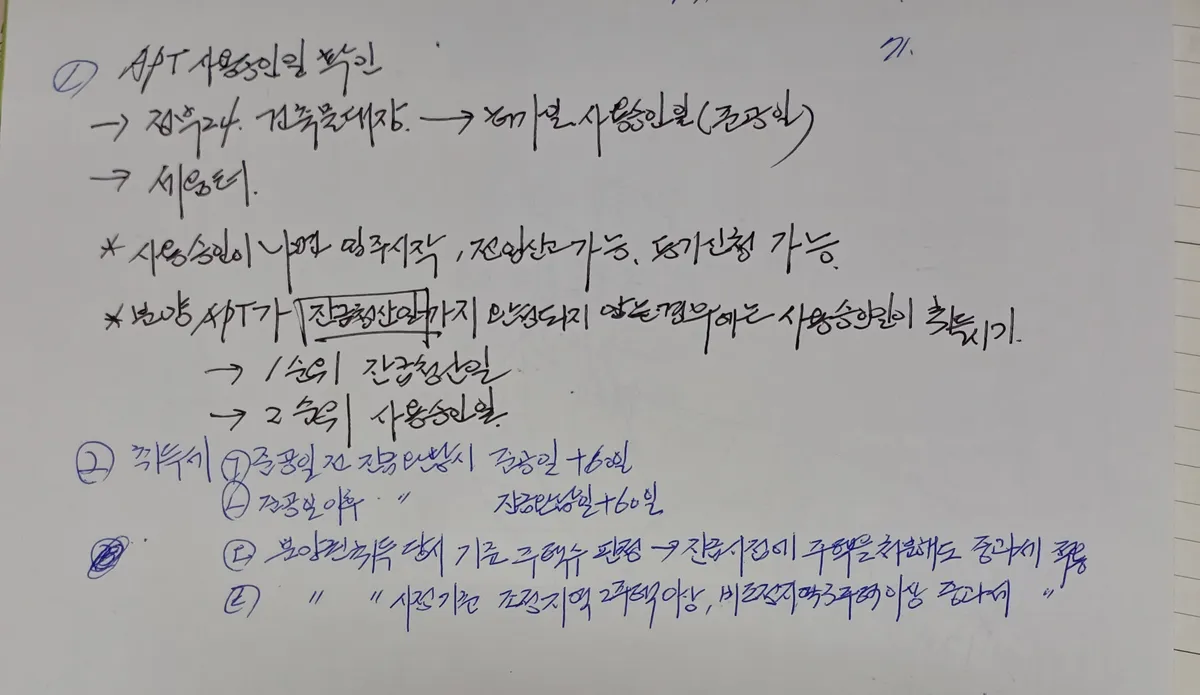 기.
① APT 사용승인일 확인
→ 정부24. 건축물대장. → 허가일. 사용승인일(준공일)
→ 세움터.
* 사용승인이 나면 입주시작, 전입신고 가능, 등기신청 가능.
* 분양 APT가 잔금청산일까지 완성되지 않는경우에는 사용승인일이 취득시기.
→ 1순위 잔금청산일
→ 2순위 사용승인일.
② 취득세 ㉠ 준공일 전 잔금완납시 준공일+60일
㉡ 준공일이후 〃 잔금완납일+60일
㉢ 분양권취득 당시 기준 주택수 판정 → 잔금시점에 주택을 처분해도 중과세 적용
㉣ 〃 〃 시점기준 조정지역 2주택이상, 비조정지역3주택이상 중과세 〃